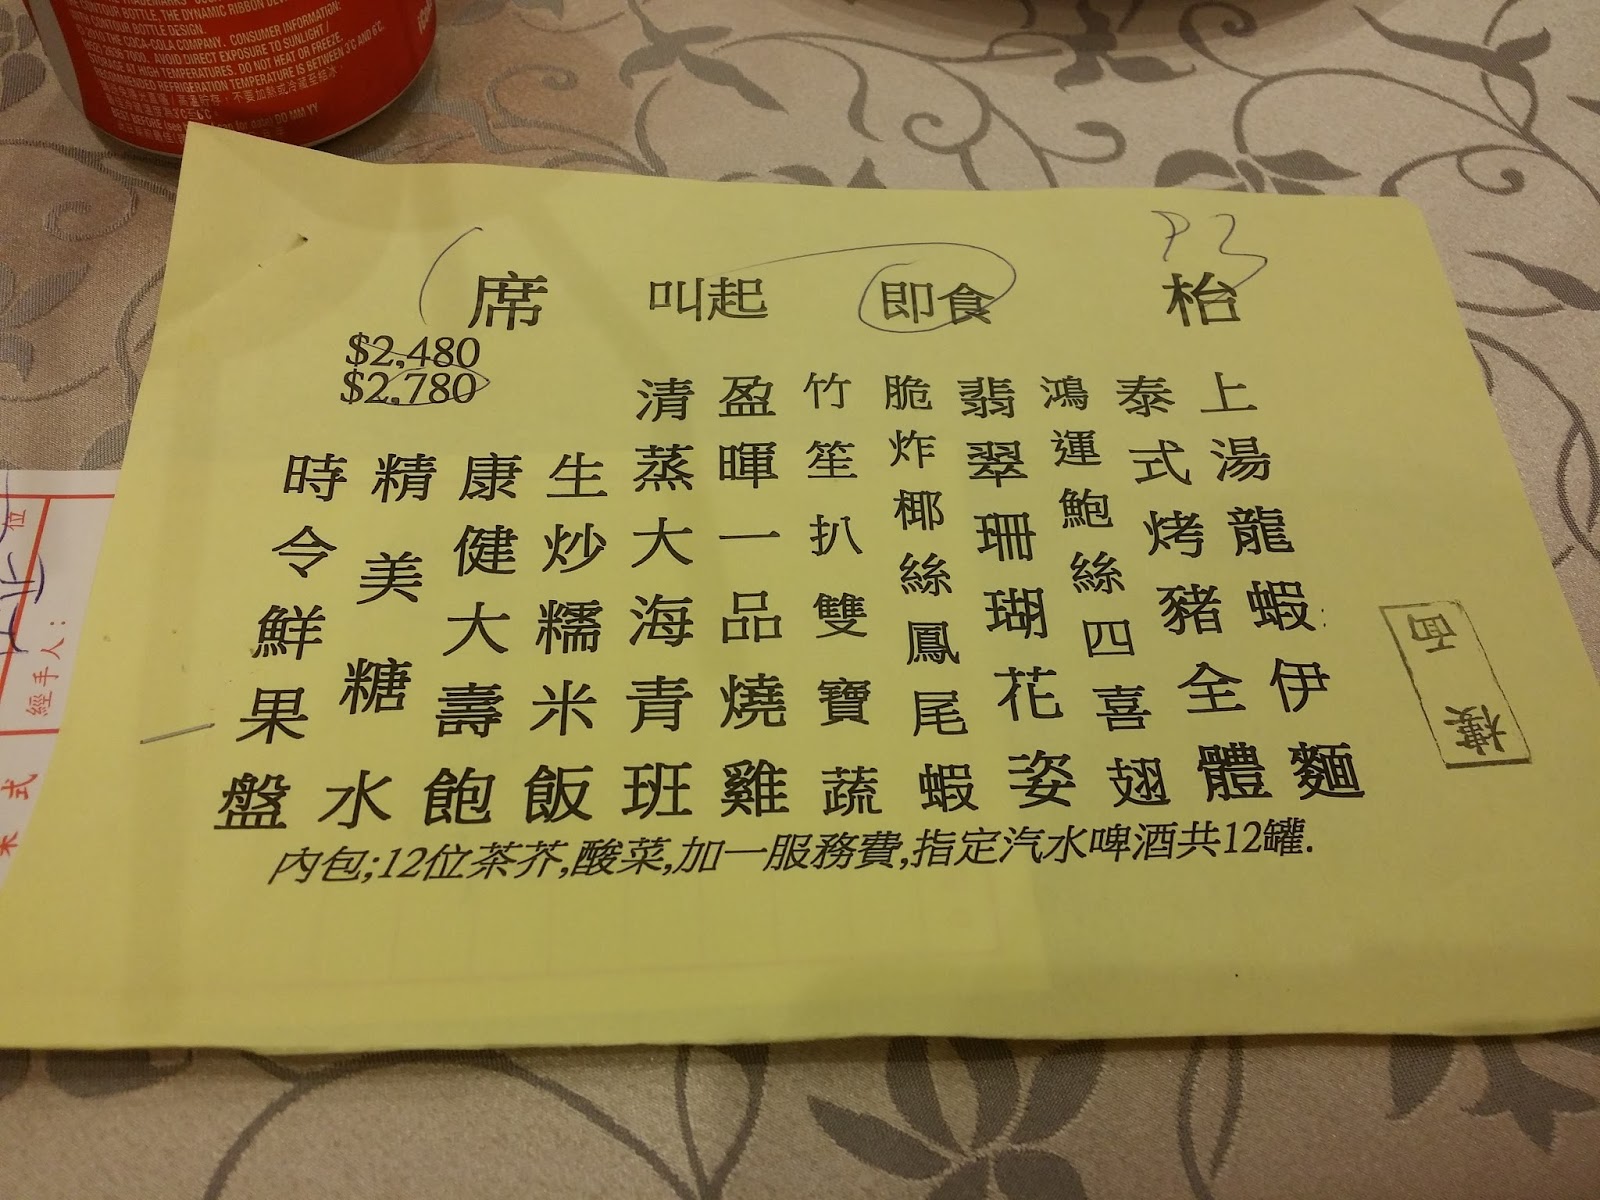 CONTOUR BOTTLE, THE DYNAMIC RIBBON DEV
CONTOUR BOTTLE DESIGN.
THE COCA-COLA COMPANY. CONSUMER INFORMATION:
AVOID DIRECT EXPOSURE TO SUNLIGHT /
STORAGE AT HIGH TEMPERATURES. DO NOT HEAT OR FREEZE.
RECOMMENDED REFRIGERATION TEMPERATURE IS BETWEEN 3°C AND 6°C.
高溫貯存,不要加熱或冷藏至結冰。
席 叫起 即食 枱
P3
$2,480
$2,780
上湯龍蝦伊麵
泰式烤豬全體
鴻運鮑絲四喜翅
翡翠珊瑚花姿
脆炸椰絲鳳尾蝦
竹笙扒雙寶蔬
盈暉一品燒雞
清蒸大海青班
生炒糯米飯
康健大壽飽
精美糖水
時令鮮果盤
內包;12位茶芥,酸菜,加一服務費,指定汽水啤酒共12罐.
樓面
位
經手人:
式